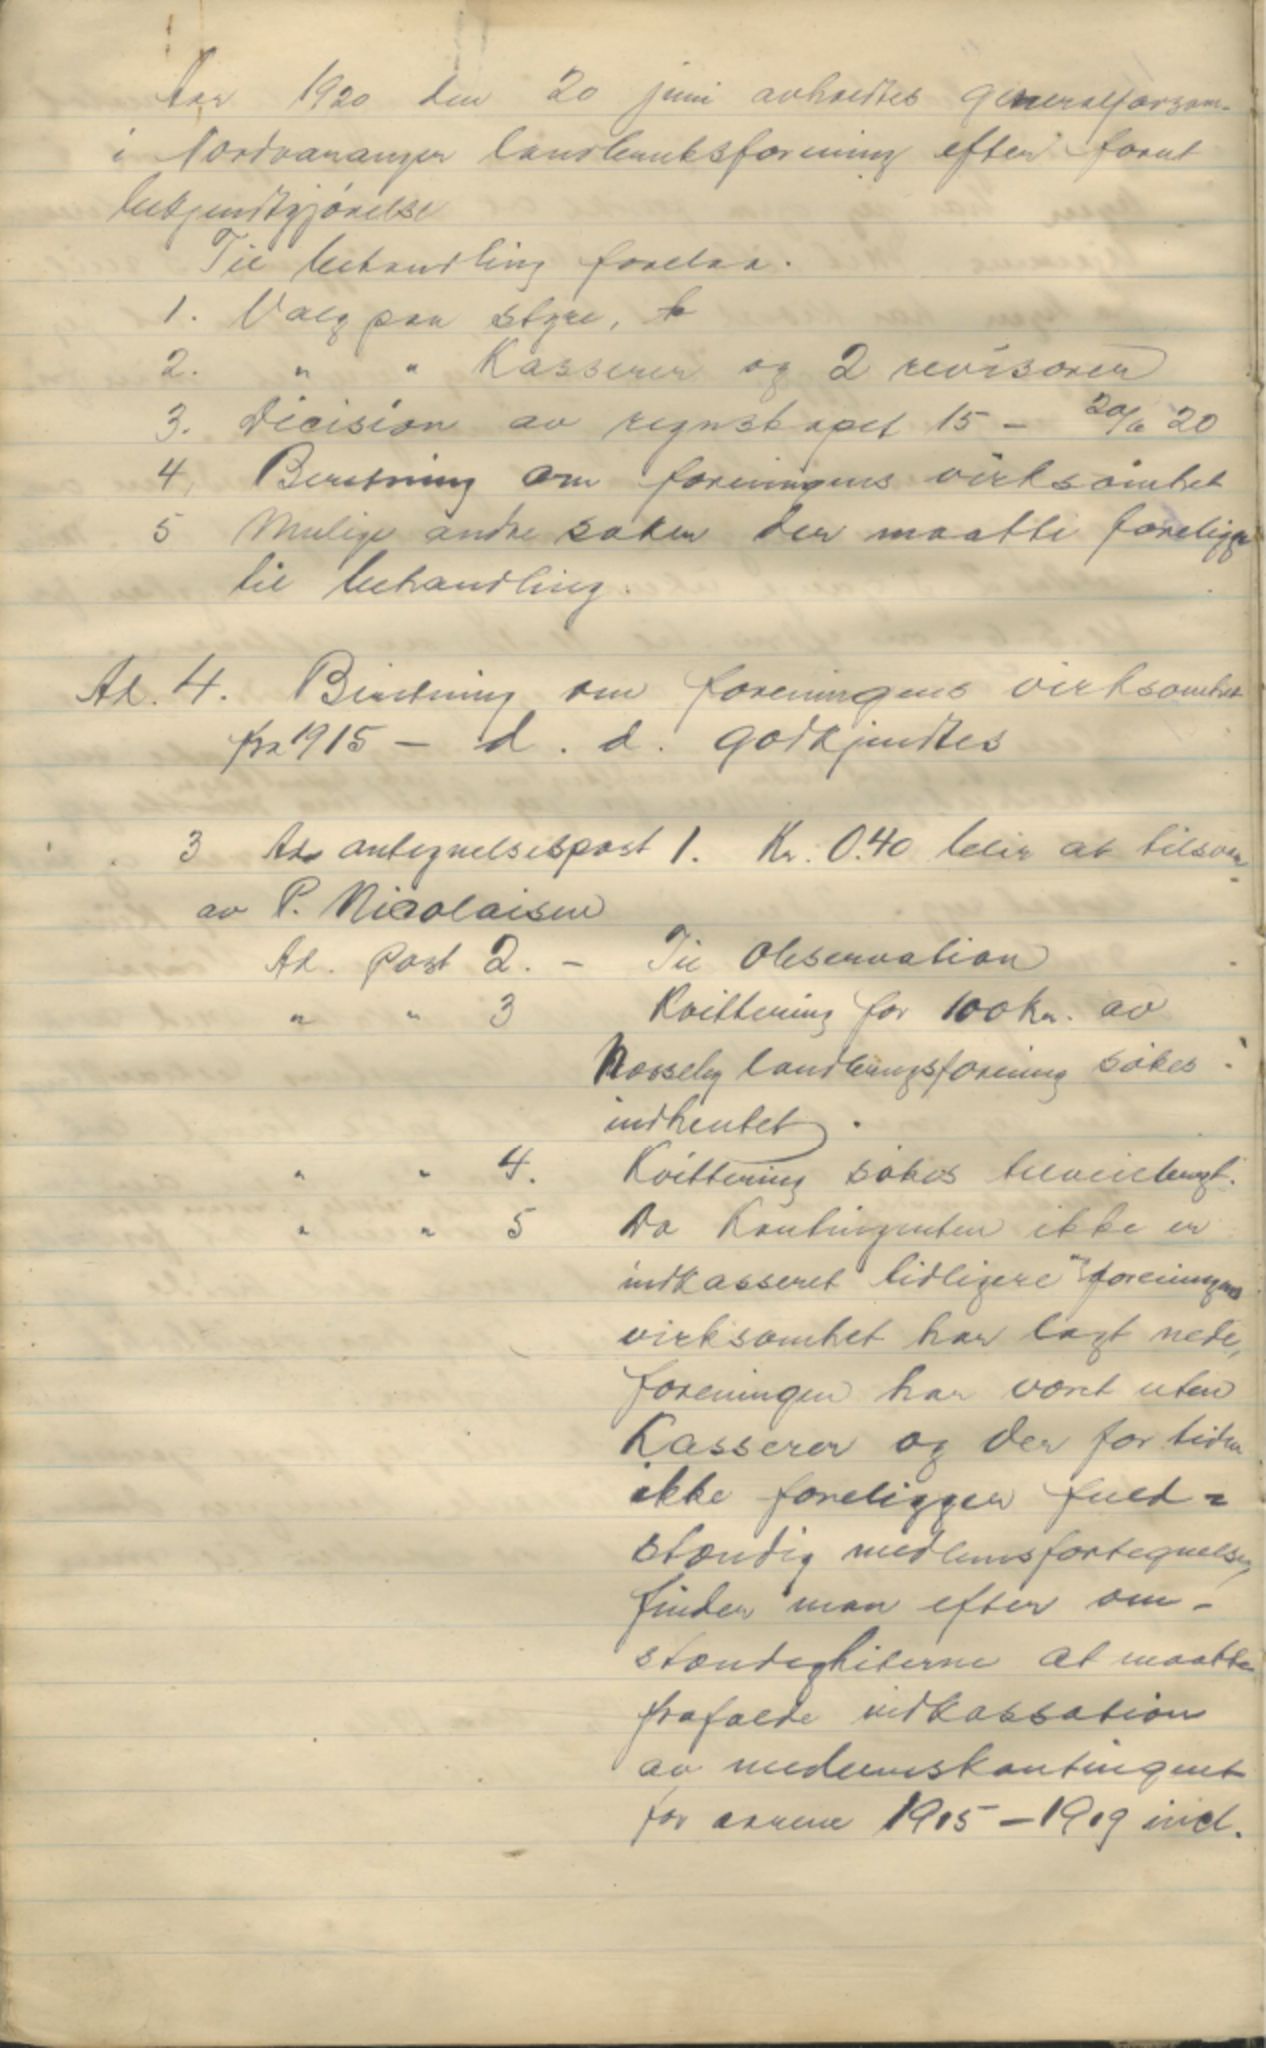 Aar 1920 den 20 juni avholdtes generalforsam-
i Nordvaranger landbruksforening efter forut
bekjendtgjörelse
Til behandling forelaa.
1. Valg paa styre,
2. " " Kasserer og 2 revisorer
3. Dicision av regnskapet 15 – 20/6 20
4. Beretning om foreningens virksomhet
5 Mulige andre saker der maatte foreligge
til behandling.
Ad. 4. Beretning om foreningens virksomhet
fra 1915 – d. d. godkjendtes
3 Ad antegnelsespost 1. Kr. 0.40 blir at tilsvare
av P. Nicolaisen
Ad. post 2. – Til Observation
" " 3 Kvittering for 100 kr. av
landbrugsforening sökes
indhentet.
" " 4. Kvittering sökes tilveiebragt.
" " 5 Da Kontingenten ikke er
indkasseret tidligere og foreningens
virksomhet har lagt nede,
foreningen har været uten
Kasserer og der for tiden
ikke foreligger fuld-
stændig medlemsfortegnelse,
finder man efter om-
stændigheterne at maatte
frafalde indkassation
av medlemskontingent
for aarene 1915 – 1919 incl.